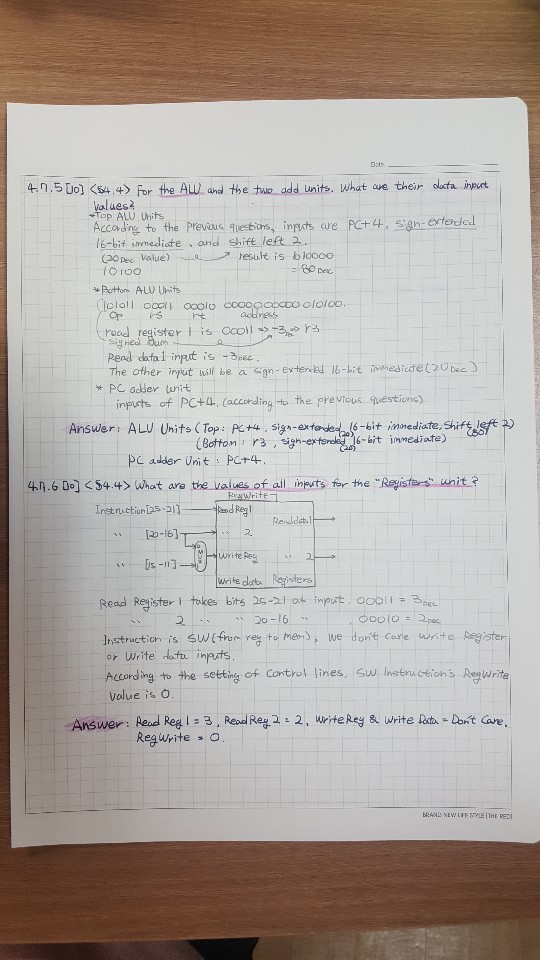 Date.
4.7.5 [10] <§4.4> For the ALU and the two add units. What are their data input
values?
*Top ALU Units
According to the previous questions, inputs are PC+4, sign-extended
16-bit immediate, and shift left 2.
(20Dec Value) → result is b10000
10100 = 80 Dec
*Bottom ALU Units
101011 00011 00010 0000000000010100.
op rs rt address
read register 1 is 00011 ⇒ -3 ⇒ r3
signed num
Read data1 input is -3Dec.
The other input will be a sign-extended 16-bit immediate (20Dec)
* PC adder unit
inputs of PC+4. (according to the previous questions)
Answer: ALU Units (Top: PC+4, sign-extended 16-bit immediate, Shift left 2)
(20) (80)
(Bottom: r3, sign-extended 16-bit immediate)
(20)
PC adder Unit: PC+4.
4.7.6 [10] <§4.4> What are the values of all inputs for the "Registers" unit?
RegWrite
Instruction[25-21] Read Reg1
Readdata1
〃 [20-16] 〃 2
MUX
Write Reg 〃 2
〃 [15-11]
Write data Registers
Read Register 1 takes bits 25-21 as input. 00011 = 3Dec
〃 2 〃 〃 20-16 〃, 00010 = 2Dec
Instruction is SW (from reg to mem), we don't care write Register
or Write data inputs.
According to the setting of Control lines, SW Instruction's RegWrite
Value is 0.
Answer: Read Reg 1 = 3, Read Reg 2 = 2, Write Reg & Write Data = Don't Care,
RegWrite = 0.
BRAND NEW LIFE STYLE [THE RED]